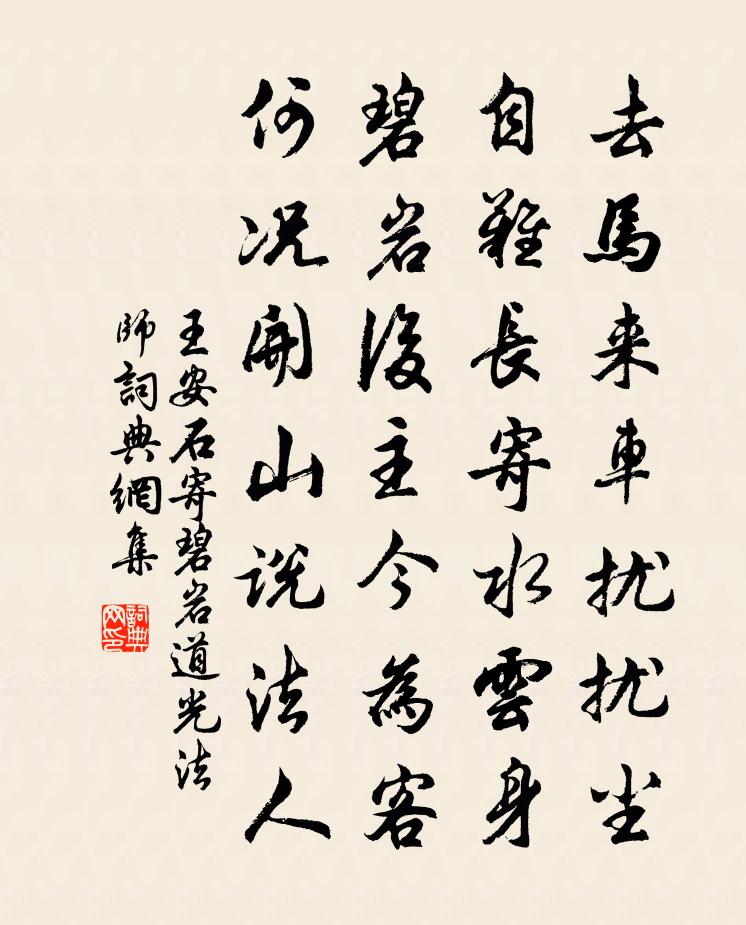 去馬来車扰扰尘
自難長寄水雲身
碧岩後主今為客
何况開山説法人
王安石寄碧岩道光法
師詞典網集
詞典
网印